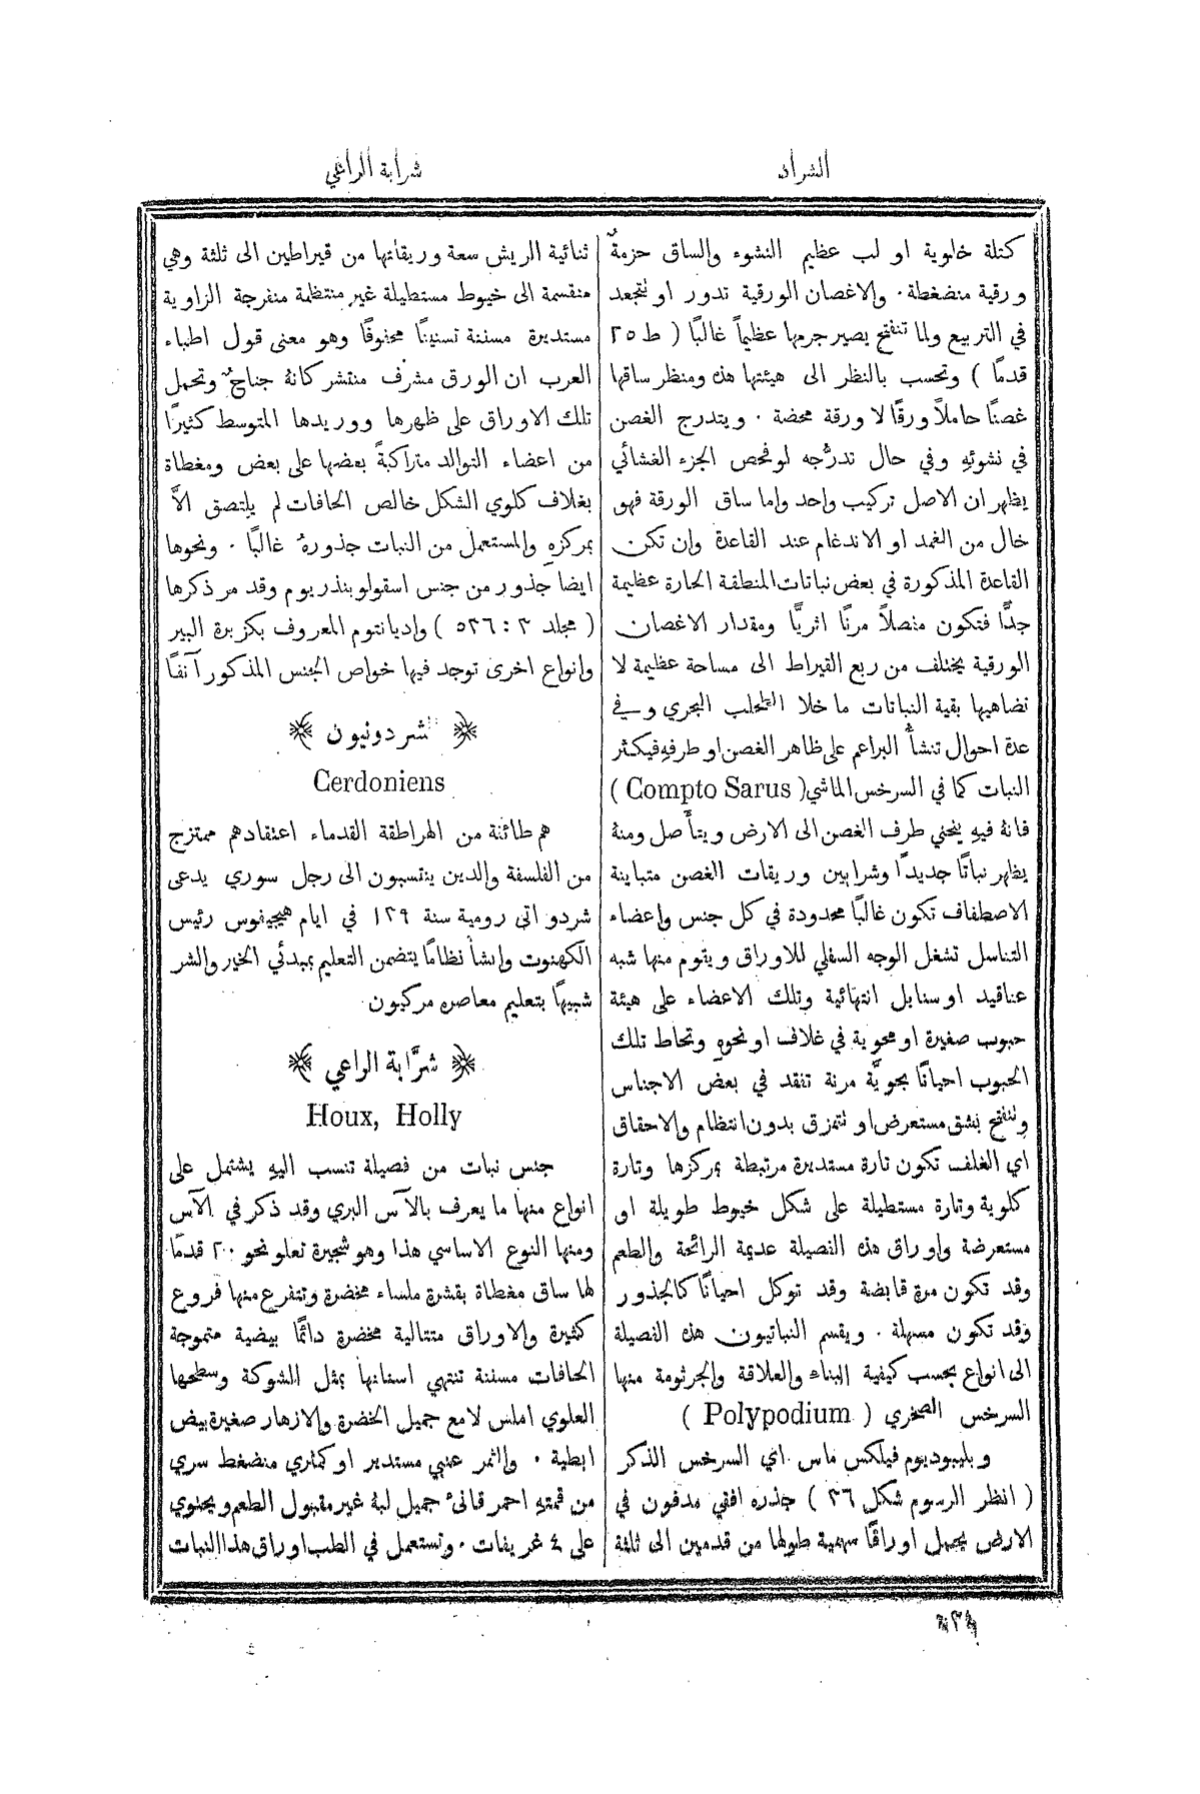 الشراد
شرابة الراعي
كتلة خلوية او لب عظيم النشوء والساق حزمةٌ
ورقية منضغطة. والاغصان الورقية تدور او تتجعد
في التربيع ولما تنفتح يصير جرمها عظيماً غالبًا ( ط ٢٥
قدمًا ) وتحسب بالنظر الى هيئتها هذه ومنظر ساقها
غصنًا حاملاً ورقًا لا ورقة محضة. ويتدرج الغصن
في نشوئهِ وفي حال تدرُّجه لو فحص الجزء الغشائي
يظهر ان الاصل تركيب واحد واما ساق الورقة فهو
خال من الغمد او الاندغام عند القاعدة وان تكن
القاعدة المذكورة في بعض نباتات المنطقة الحارة عظيمة
جدًّا فتكون منصلاً مرنًا اثريًّا ومقدار الاغصان
الورقية يختلف من ربع القيراط الى مساحة عظيمة لا
تضاهيها بقية النباتات ما خلا الطحلب البحري وفي
عدة احوال تنشأ البراعم على ظاهر الغصن او طرفهِ فيكثر
النبات كما في السرخس الماشي ( Compto Sarus )
فانهُ فيهِ ينحني طرف الغصن الى الارض ويتأصل ومنهُ
يظهر نباتًا جديدًا وشرايين وريقات الغصن متباينة
الاصطفاف تكون غالبًا محدودة في كل جنس واعضاء
التناسل تشغل الوجه السفلي للاوراق ويتوم منها شبه
عناقيد او سنابل انتهائية وتلك الاعضاء على هيئة
حبوب صغيرة او محوية في غلاف او نحوهِ وتحاط تلك
الحبوب احيانًا بحويَّة مرنة تنقد في بعض الاجناس
وتنفتح بشق مستعرض او تتمزق بدون انتظام والاحقاق
اي الغلف تكون تارة مستديرة مرتبطة بمركزها وتارة
كلوية وتارة مستطيلة على شكل خيوط طويلة او
مستعرضة واوراق هذه الفصيلة عديمة الرائحة والطعم
وقد تكون مرة قابضة وقد توكل احيانًا كالجذور
وقد تكون مسهلة. ويقسم النباتيون هذه الفصيلة
الى انواع بحسب كيفية البناء والعلاقة والجرثومة منها
السرخس الصخري ( Polypodium )
وبليبوديوم فيلكس ماس اي السرخس الذكر
( انظر الرسوم شكل ٣٦ ) جذره افقي مدفون في
الارض يحمل اوراقًا سهمية طولها من قدمين الى ثلثة
ثنائية الريش سعة وريقاتها من قيراطين الى ثلثة وهي
منقسمة الى خيوط مستطيلة غير منتظمة منفرجة الزاوية
مستديرة مسننة تسنينًا محنوفًا وهو معنى قول اطباء
العرب ان الورق مشرف منتشر كانهُ جناح وتحمل
تلك الاوراق على ظهرها ووريدها المتوسط كثيرًا
من اعضاء التوالد متراكبةً بعضها على بعض ومغطاة
بغلاف كلوي الشكل خالص الحافات لم يلتصق الاَّ
بمركزهِ والمستعمل من النبات جذورهُ غالبًا. ونحوها
ايضا جذور من جنس اسقولوبنذريوم وقد مر ذكرها
( مجلد ٣ : ٥٣٦ ) واديانتوم المعروف بكزبرة البير
وانواع اخرى توجد فيها خواص الجنس المذكور آنفًا
شردونيون
Cerdoniens
هم طائفة من الهراطقة القدماء اعتقادهم ممتزج
من الفلسفة والدين ينتسبون الى رجل سوري يدعى
شردو اتى رومية سنة ١٣٩ في ايام هيجينوس رئيس
الكهنوت وانشأ نظامًا يتضمن التعليم بمبدئي الخير والشر
شبيهًا بتعليم معاصره مركيون
شرَّابة الراعي
Houx, Holly
جنس نبات من فصيلة تنسب اليهِ يشتمل على
انواع منها ما يعرف بالآس البري وقد ذكر في الآس
ومنها النوع الاساسي هذا وهو شجيرة تعلو نحو ٢٠ قدمًا
لها ساق مغطاة بقشرة ملساء مخضرة وتتفرع منها فروع
كثيرة والاوراق متتالية مخضرة دائمًا بيضية متموجة
الحافات مسننة تنتهي اسنانها بمثل الشوكة وسطحها
العلوي املس لامع جميل الخضرة والازهار صغيرة بيض
ابطية. والثمر عنبي مستدير او كمثري منضغط سري
من قمتهِ احمر قانئ جميل لبهُ غير مقبول الطعم ويحتوي
على ٤ غريفات. وتستعمل في الطب اوراق هذا النبات